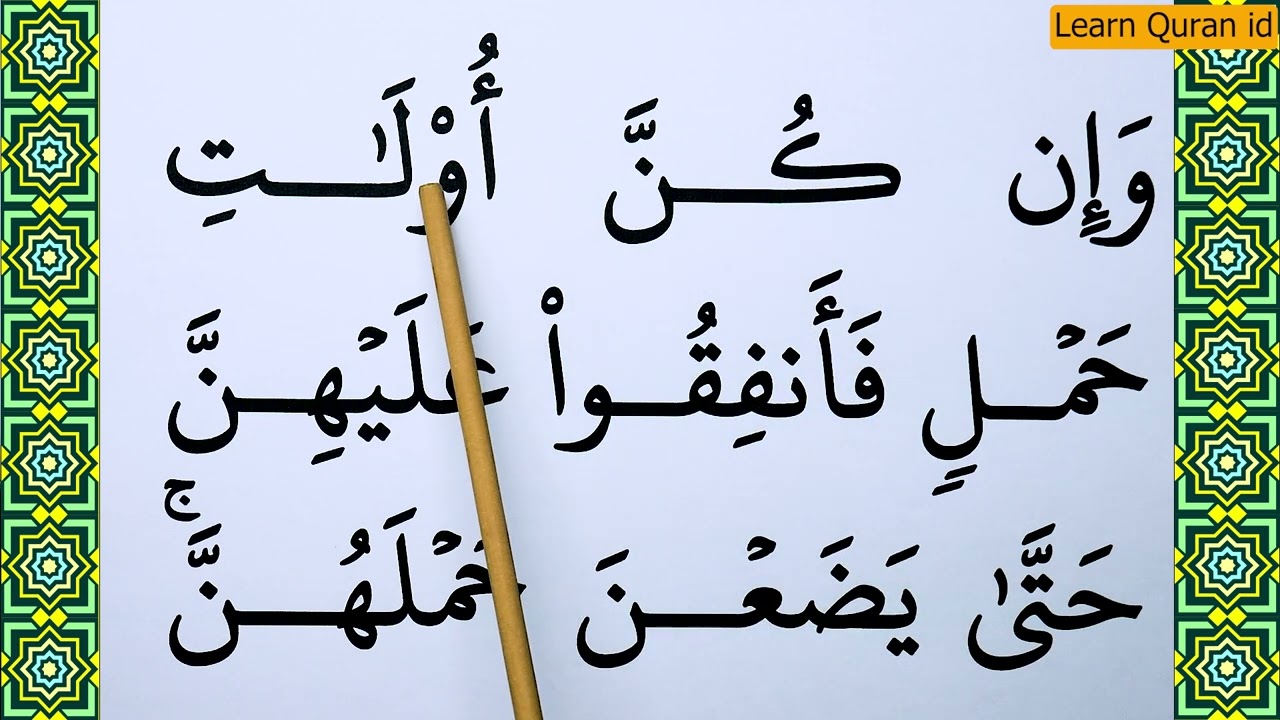 Learn Quran id
وَإِن كُنَّ أُو۟لَـٰتِ
حَمْلٍ فَأَنفِقُوا۟ عَلَيْهِنَّ
حَتَّىٰ يَضَعْنَ حَمْلَهُنَّ ۚ